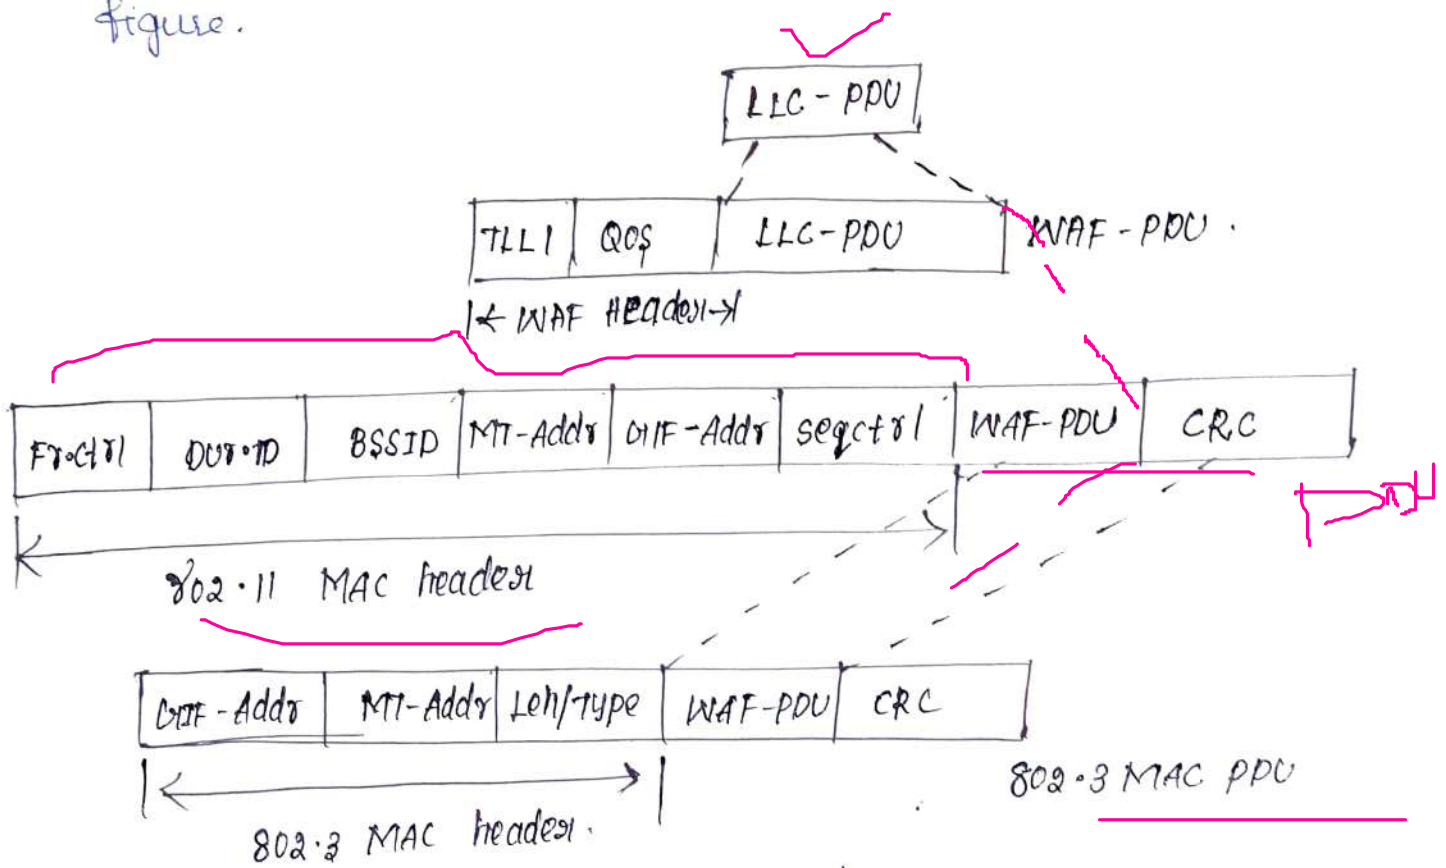 figure.
LLC - PDU
TLLI QOS LLC-PDU WAF - PDU.
WAF Header
Fr.Ctrl Dur.ID BSSID MT-Addr GIF-Addr seqctrl WAF-PDU CRC
802.11 MAC header
GIF-Addr MT-Addr Len/Type WAF-PDU CRC
802.3 MAC PDU
802.3 MAC header.